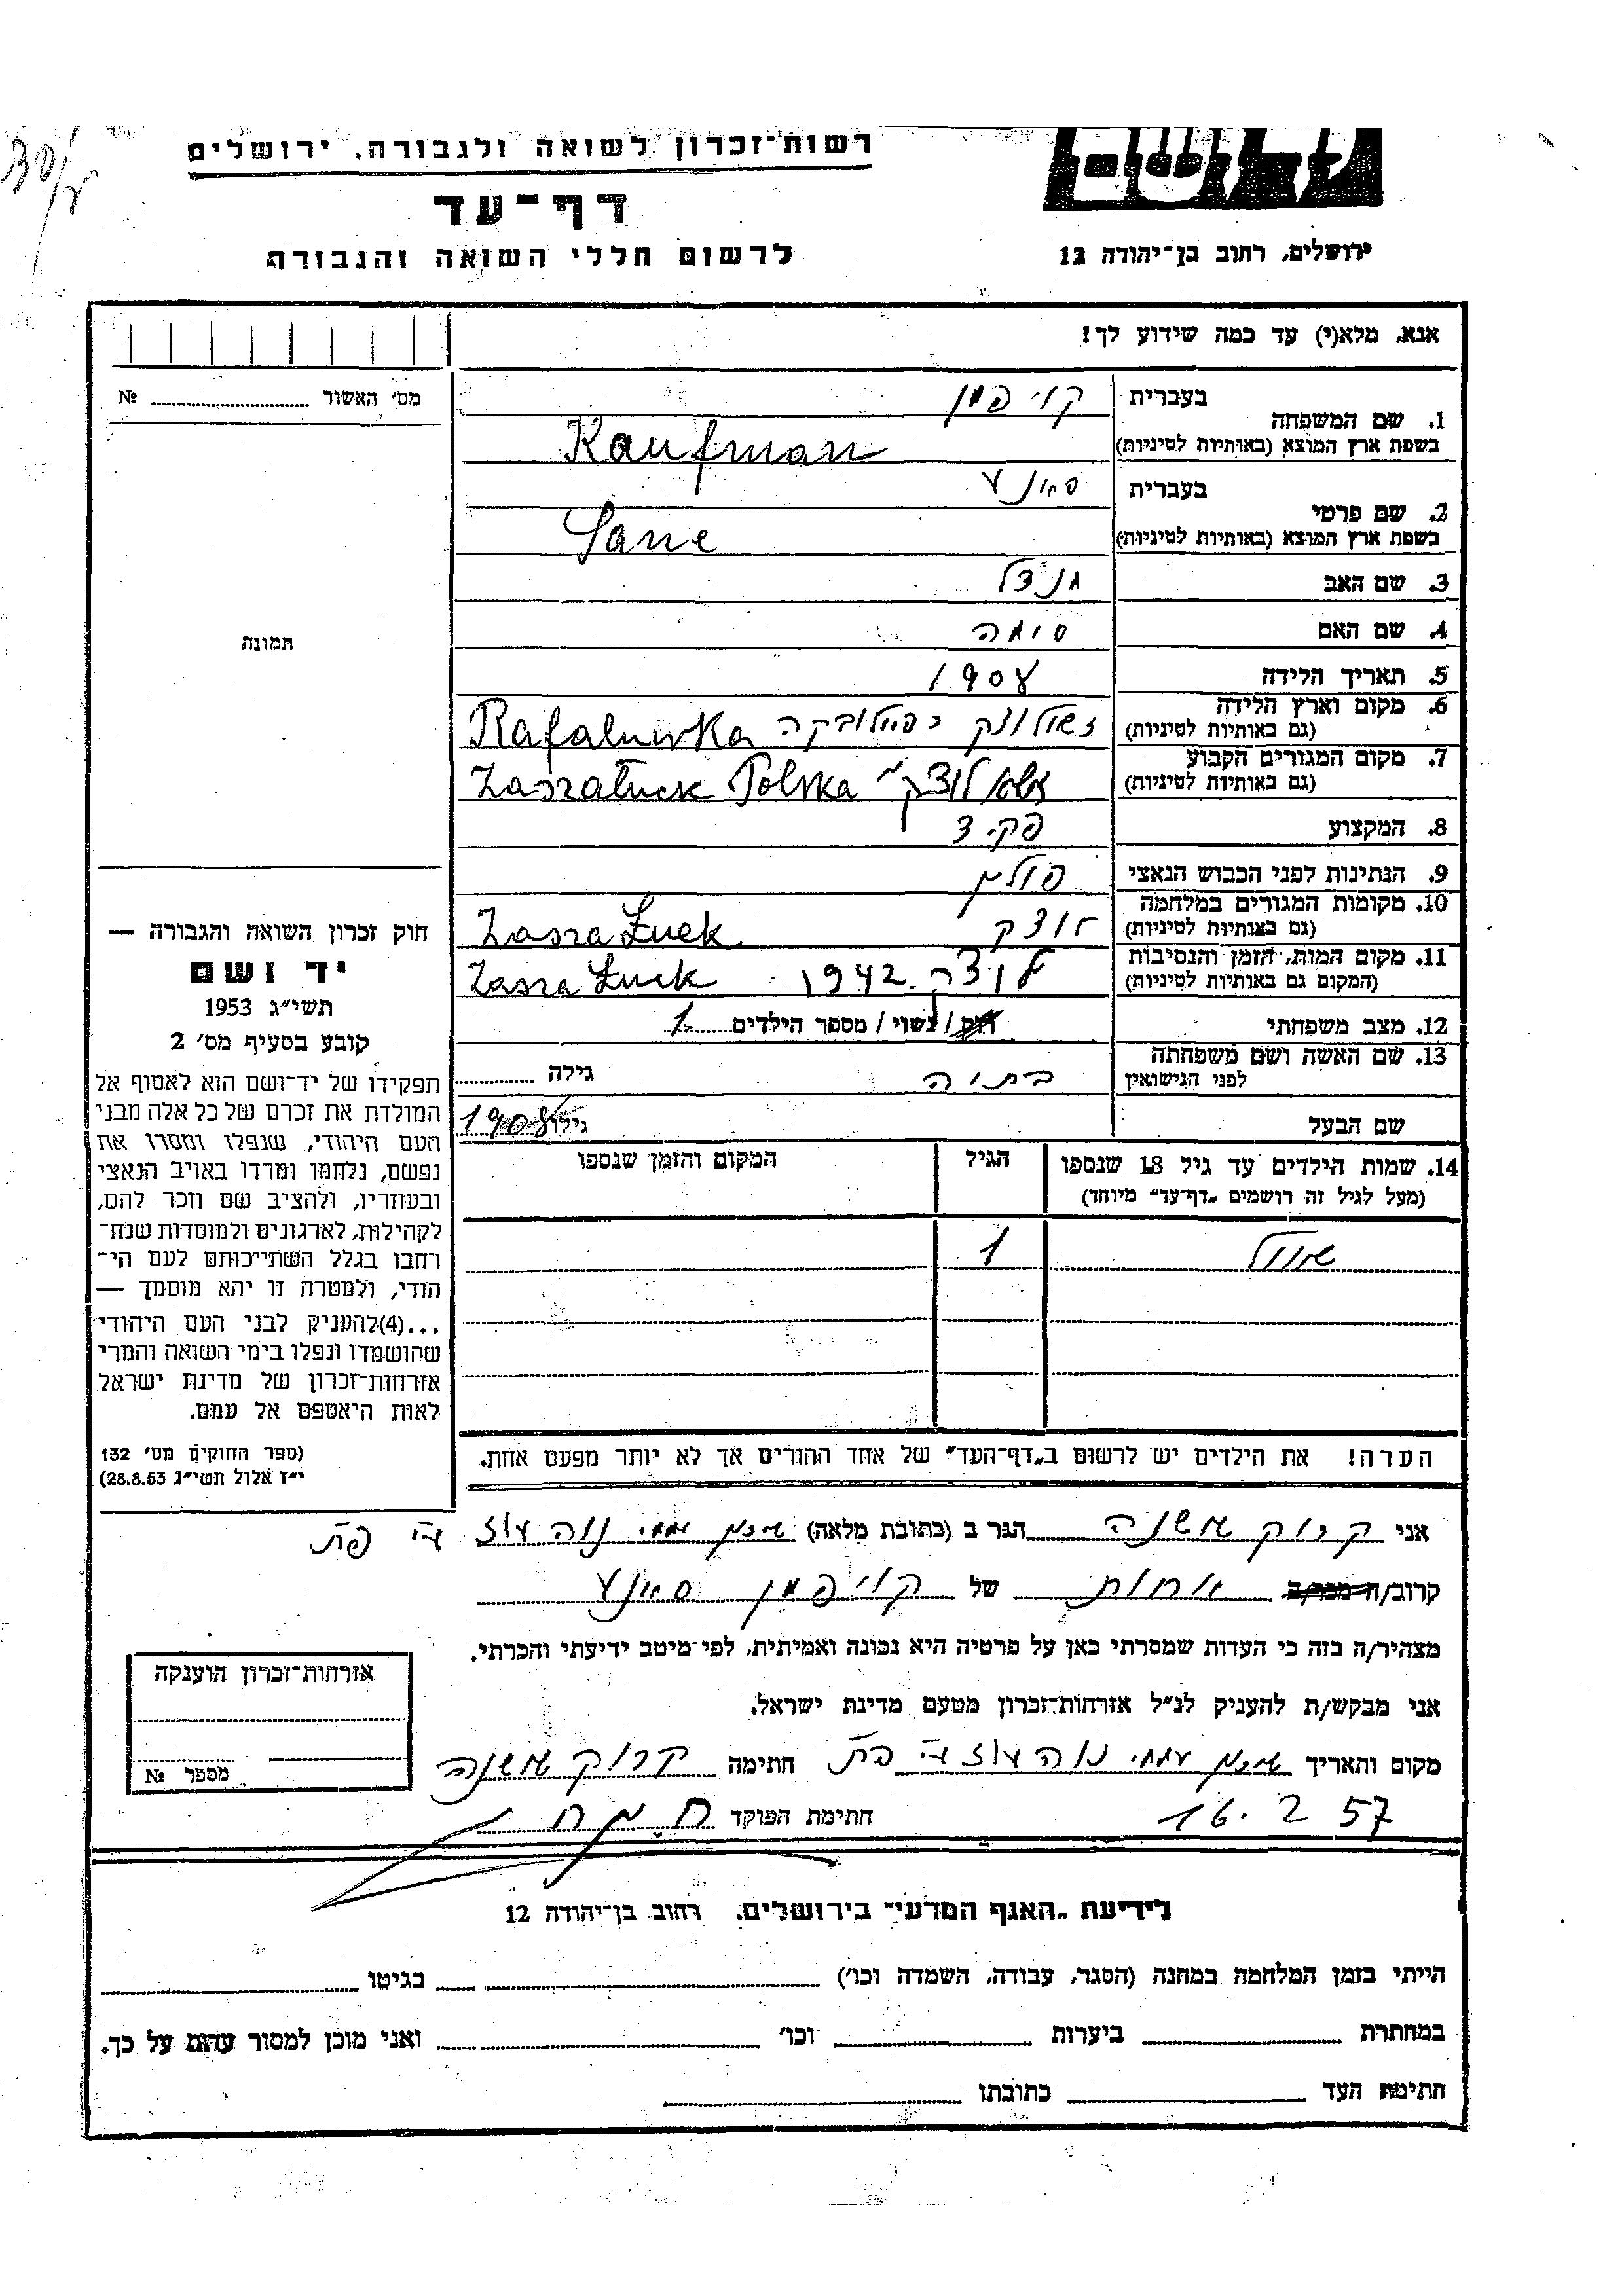 רשות־זכרון לשואה ולגבורה, ירושלים
דף־עד
לרשום חללי השואה והגבורה
ירושלים, רחוב בן־יהודה 12
אנא, מלא(י) עד כמה שידוע לך!
מס׳ האשור № 
1. שם המשפחה
בעברית קויפמן
בשפת ארץ המוצא (באותיות לטיניות) Kaufman
2. שם פרטי
בעברית
בשפת ארץ המוצא (באותיות לטיניות)
3. שם האב
4. שם האם סימה
5. תאריך הלידה 1908
6. מקום וארץ הלידה
(גם באותיות לטיניות) Rafaluwka
7. מקום המגורים הקבוע
(גם באותיות לטיניות) Polska
8. המקצוע פקיד
9. הנתינות לפני הכבוש הנאצי פולין
10. מקומות המגורים במלחמה
(גם באותיות לטיניות) לוצק Łuck
11. מקום המות, הזמן והנסיבות
(המקום גם באותיות לטיניות) 1942 Łuck
12. מצב משפחתי רווק / נשוי / מספר הילדים 1
13. שם האשה ושם משפחתה
לפני הנישואין גילה
שם הבעל גילו 1908
14. שמות הילדים עד גיל 18 שנספו
(מעל לגיל זה רושמים „דף־עד״ מיוחד)
הגיל
המקום והזמן שנספו
1
הערה! את הילדים יש לרשום ב„דף־העד״ של אחד ההורים אך לא יותר מפעם אחת.
תמונה
חוק זכרון השואה והגבורה —
יד ושם
תשי״ג 1953
קובע בסעיף מס׳ 2
תפקידו של יד־ושם הוא לאסוף אל
המולדת את זכרם של כל אלה מבני
העם היהודי, שנפלו ומסרו את
נפשם, נלחמו ומרדו באויב הנאצי
ובעוזריו, ולהציב שם וזכר להם,
לקהילות, לארגונים ולמוסדות שנח־
רבו בגלל השתייכותם לעם הי־
הודי, ולמטרה זו יהא מוסמך —
...(4)להעניק לבני העם היהודי
שהושמדו ונפלו בימי השואה והמרי
אזרחות־זכרון של מדינת ישראל
לאות היאספם אל עמם.
(ספר החוקים מס׳ 132
י״ז אלול תשי״ג 28.8.53)
אני הגר ב (כתובת מלאה) שיכון עממי נוה עוז
קרוב/ה מכר/ה אחות של קויפמן
מצהיר/ה בזה כי העדות שמסרתי כאן על פרטיה היא נכונה ואמיתית, לפי מיטב ידיעתי והכרתי.
אני מבקש/ת להעניק לנ״ל אזרחות־זכרון מטעם מדינת ישראל.
מקום ותאריך שיכון עממי נוה עוז חתימה
16. 2 57 חתימת הפוקד
אזרחות־זכרון הוענקה
מספר №
לידיעת „האגף המדעי״ בירושלים, רחוב בן־יהודה 12
הייתי בזמן המלחמה במחנה (הסגר, עבודה, השמדה וכו׳) בגיטו
במחתרת ביערות וכו׳ ואני מוכן למסור עדות על כך.
חתימת העד כתובתו